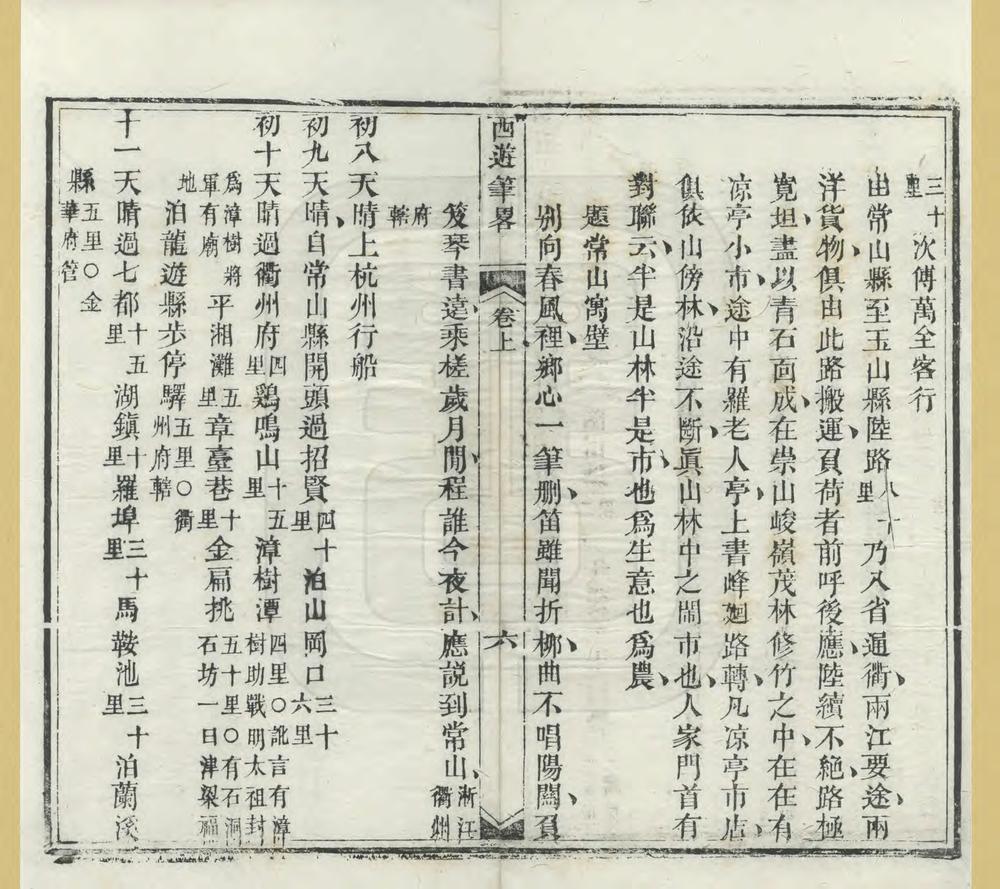 三十里次傅萬全客行
由常山縣至玉山縣陸路八十里乃入省通衢兩江要途兩
洋貨物俱由此路搬運負荷者前呼後應陸續不絕路極
寬坦盡以青石面成在崇山峻嶺茂林修竹之中在在有
凉亭小市途中有羅老人亭上書峰廻路轉凡凉亭市店
俱依山傍林沿途不斷眞山林中之閙市也人家門首有
對聯云半是山林半是市也爲生意也爲農
題常山寓壁
別向春風裡鄉心一筆刪笛雖聞折柳曲不唱陽關負
西遊筆畧 卷上 六
笈琴書遠乘槎歲月閒程誰今夜計應説到常山浙江衢州
府轄
初八天晴上杭州行船
初九天晴自常山縣開頭過招賢四十里泊山岡口三十六里
初十天晴過衢州府四里鷄鳴山十五里漳樹潭四里○訛言有漳樹助戰明太祖封
爲漳樹將軍有廟平湘灘五里章臺巷十里金扁挑五十里○有石洞石坊一曰津梁福
地泊龍遊縣步停驛五里○衢州府轄
十一天晴過七都十五里湖鎮十里羅埠三十里馬鞍池三十里泊蘭溪
縣五里○金華府管